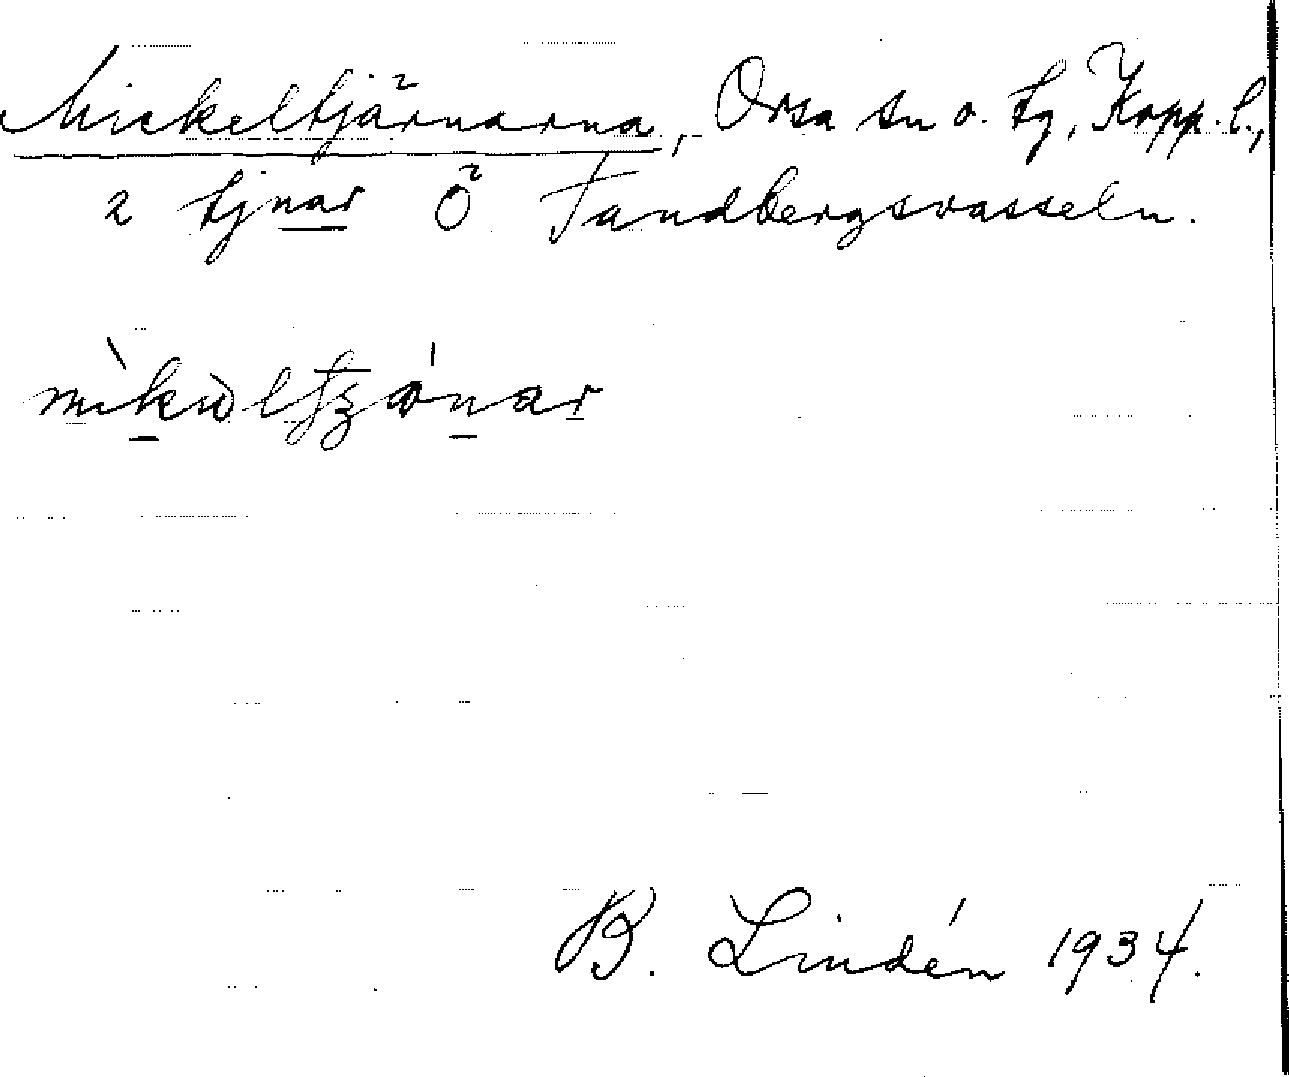 Mickeltjärnarna, Orsa sn o. tg, Kopp. l.,
2 tjnar Ö Fandbergsvasseln.
B. Lindén 1934.